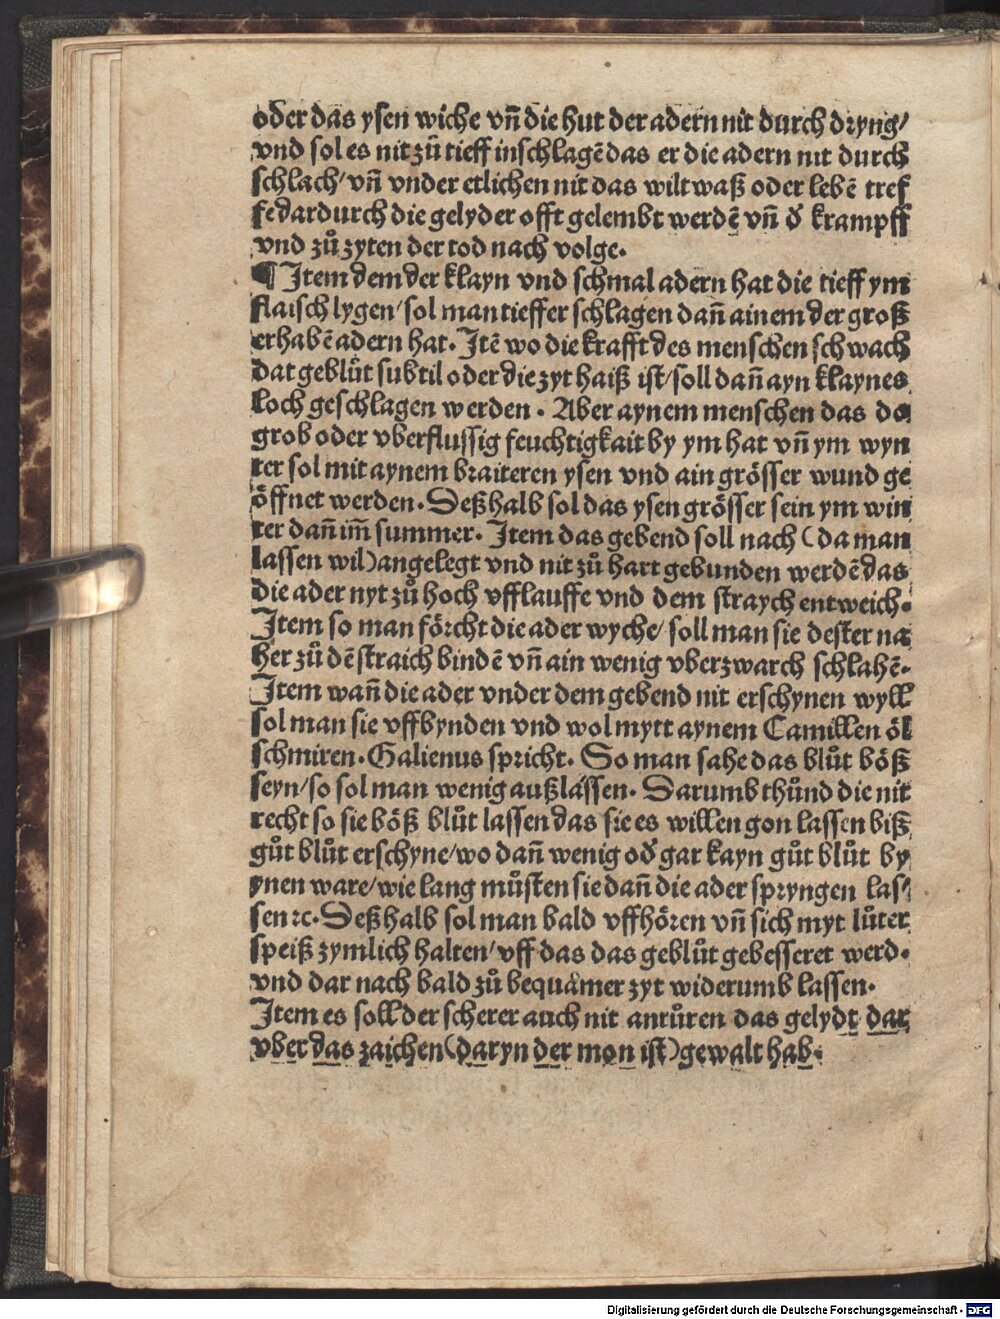 oder das ysen wiche vn̄ die hut der adern nit durch dryng/
vnd sol es nit zů tieff inschlagē das er die adern nit durch
schlach/ vn̄ vnder etlichen nit das wiltwaß oder lebē tref
fe dardurch die gelyder offt gelembt werdē vn̄ ď krampff
vnd zů zyten der tod nach volge.
¶ Item dem der klayn vnd schmal adern hat die tieff ym
flaisch lygen/ sol man tieffer schlagen dan̄ ainem der groß
erhabē adern hat. Itē wo die krafft des menschen schwach
dat geblůt subtil oder die zyt haiß ist/ soll dan̄ ayn klaynes
loch geschlagen werden. Aber aynem menschen das do
grob oder vberflussig feuchtigkait by ym hat vn̄ ym wyn
ter sol mit aynem braiteren ysen vnd ain grösser wund ge
öffnet werden. Deßhalb sol das ysen grösser sein ym win
ter dan̄ im̄ summer. Item das gebend soll nach (da man
lassen wil) angelegt vnd nit zů hart gebunden werdē das
die ader nyt zů hoch vfflauffe vnd dem straych entweich.
Item so man förcht die ader wyche/ soll man sie dester na
her zů dē straich bindē vn̄ ain wenig vberzwarch schlahē.
Item wan̄ die ader vnder dem gebend nit erschynen wyll
sol man sie vffbynden vnd wol mytt aynem Camillen öl
schmiren. Galienus spricht. So man sahe das blůt böß
seyn/ so sol man wenig außlassen. Darumb thůnd die nit
recht so sie böß blůt lassen das sie es willen gon lassen biß
gůt blůt erschyne/ wo dan̄ wenig oď gar kayn gůt blůt by
ynen ware/ wie lang můsten sie dan̄ die ader spryngen las/
sen ꝛc. Deßhalb sol man bald vffhören vn̄ sich myt lůter
speiß zymlich halten/ vff das das geblůt gebesseret werd.
vnd dar nach bald zů bequämer zyt widerumb lassen.
Item es soll der scherer auch nit anrůren das gelydt dar
vber das zaichen (daryn der mon ist) gewalt hab.
Digitalisierung gefördert durch die Deutsche Forschungsgemeinschaft - DFG